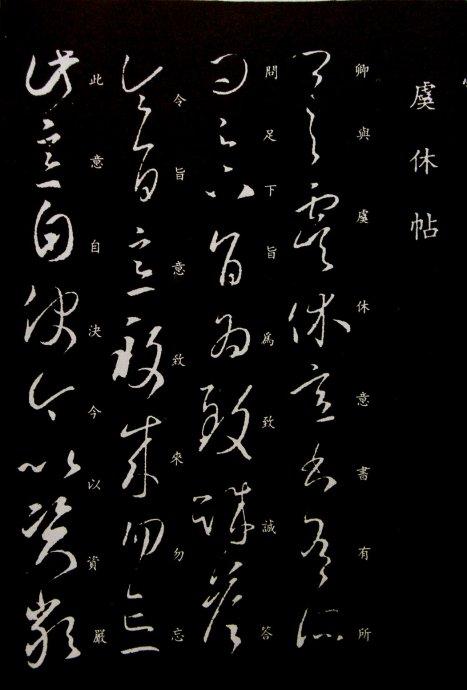 虞休帖
卿與虞休意書有所
問足下旨爲致誠答
令旨意致來勿忘
此意自決今以資嚴